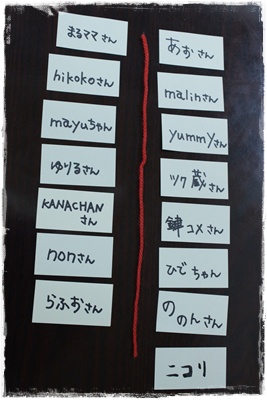 まるママさん
hikokoさん
mayuちゃん
ゆりるさん
KANACHAN
さん
nonさん
らふおさん
あおさん
malinさん
yummyさん
ツク蔵さん
鍵コメさん
ひでちゃん
ののんさん
ニコリ